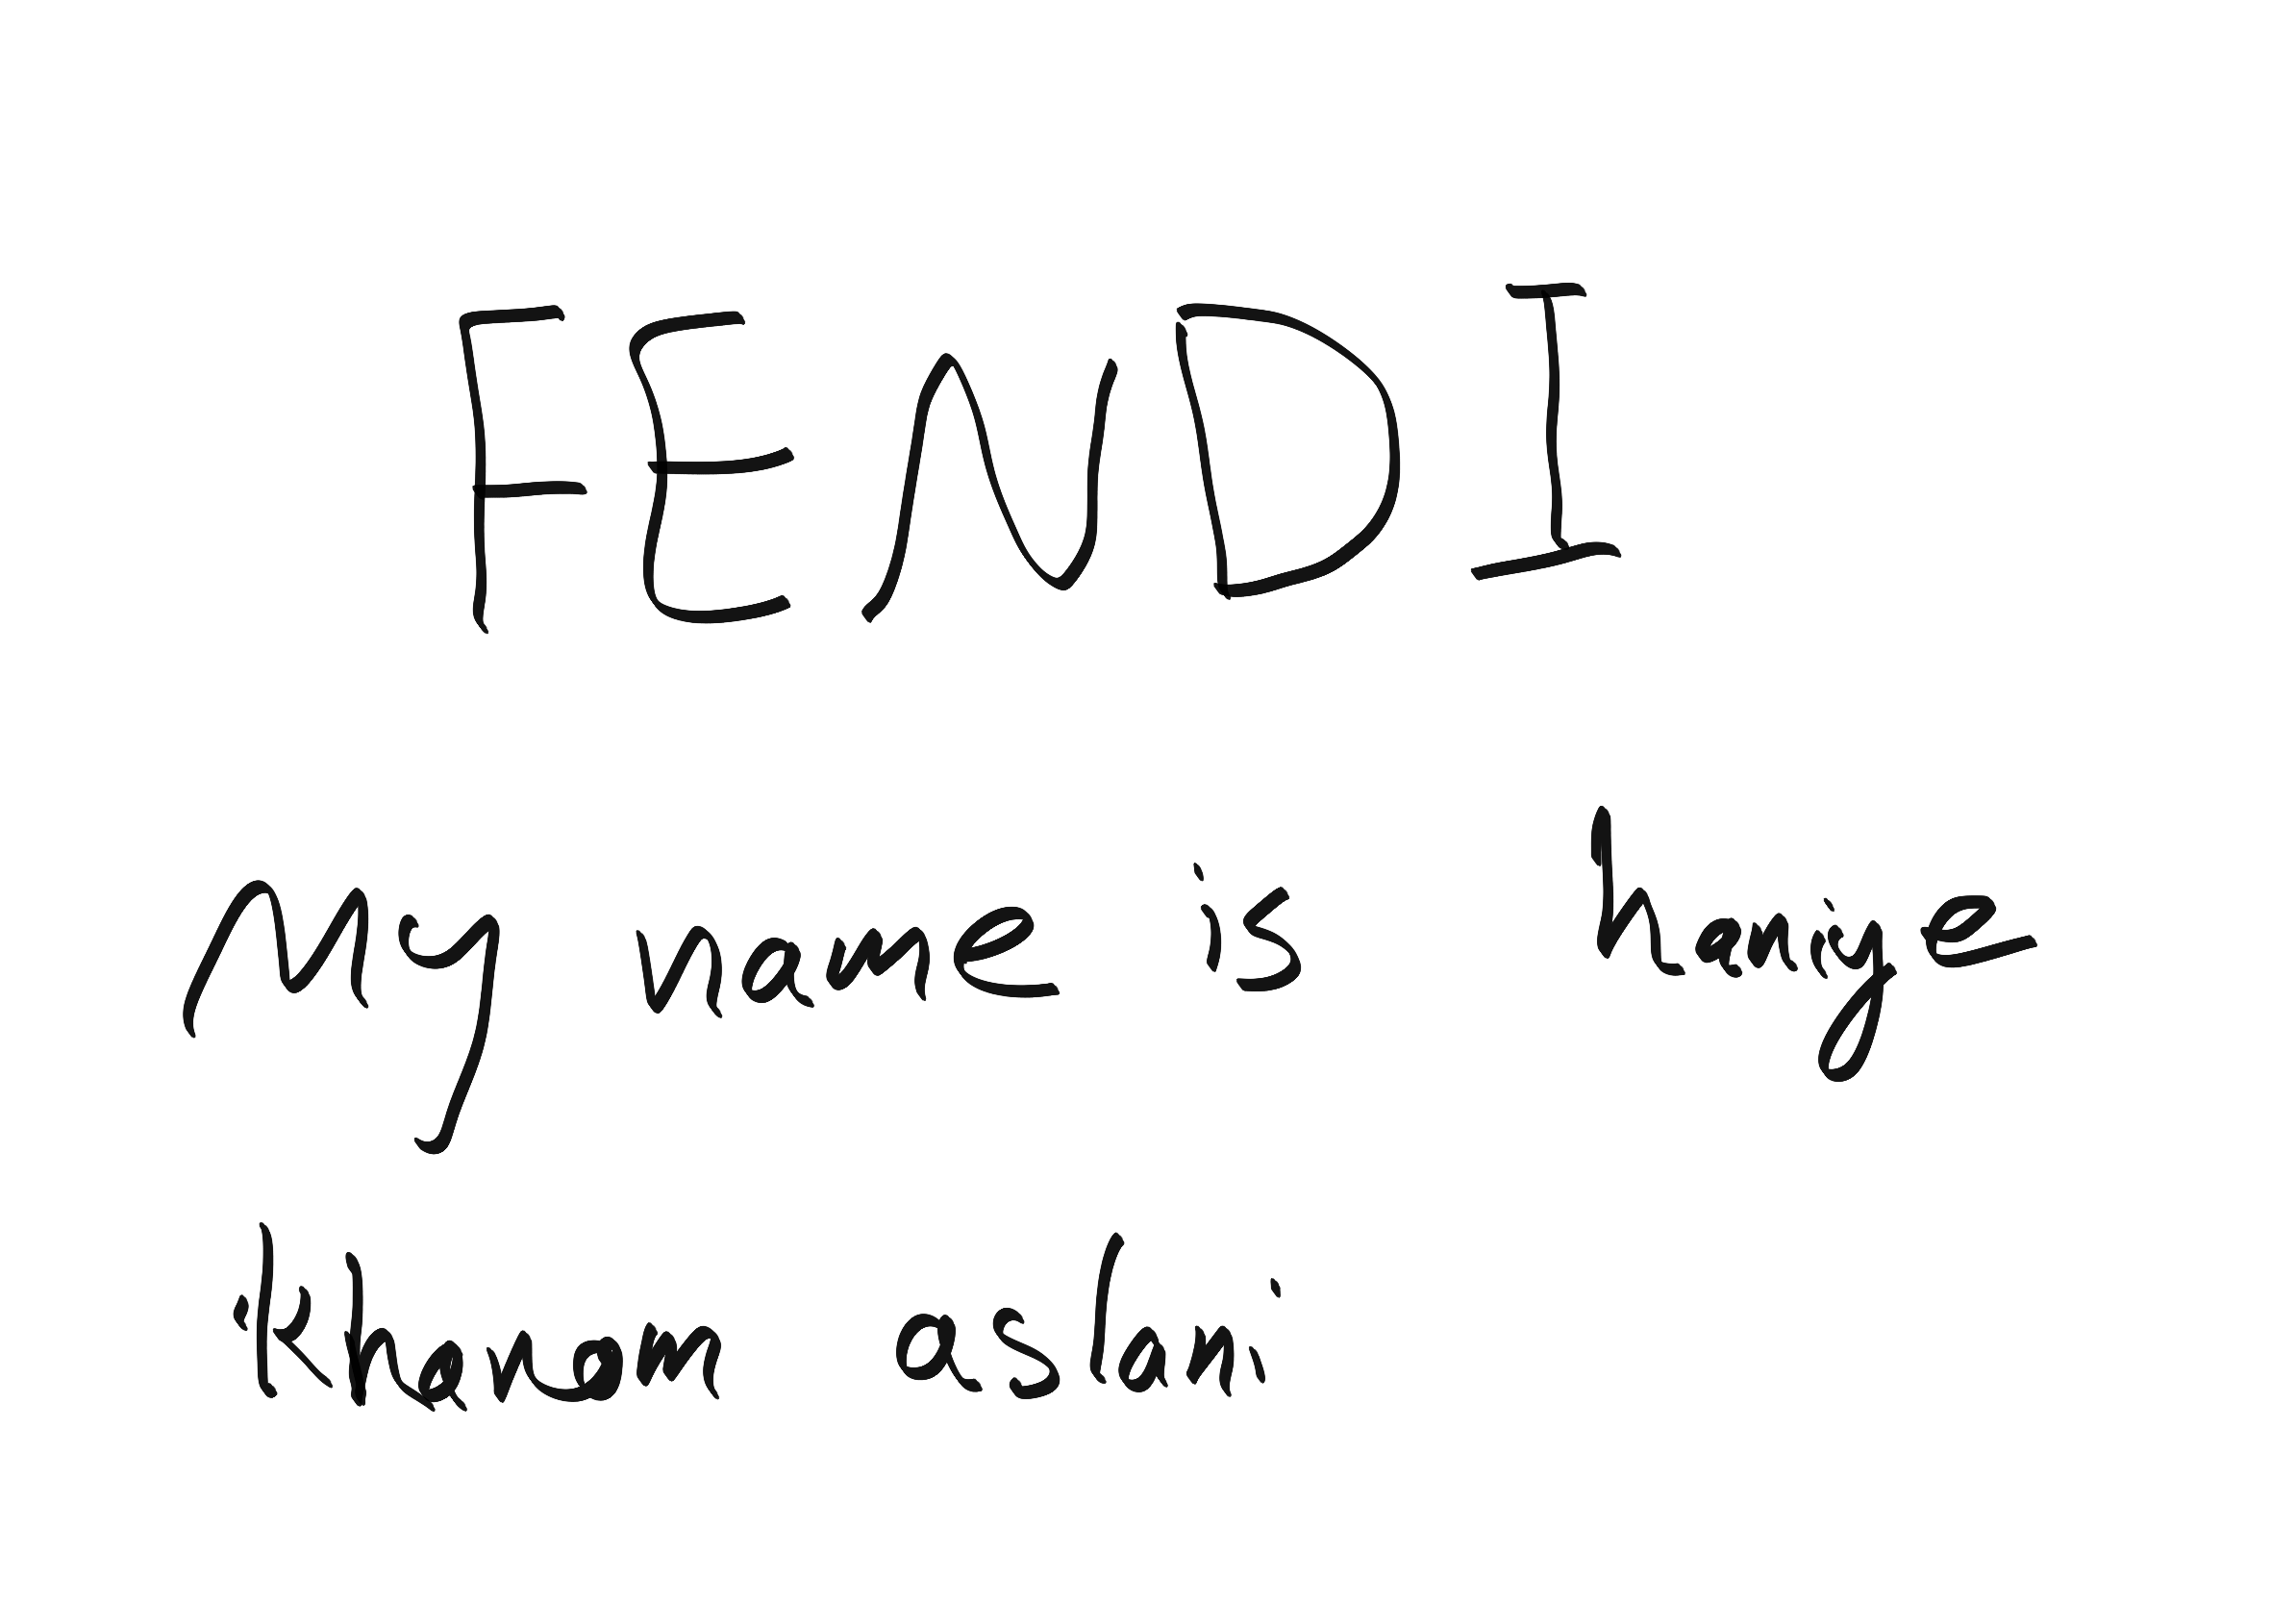 FENDI
My name is haniye
Khanam aslani